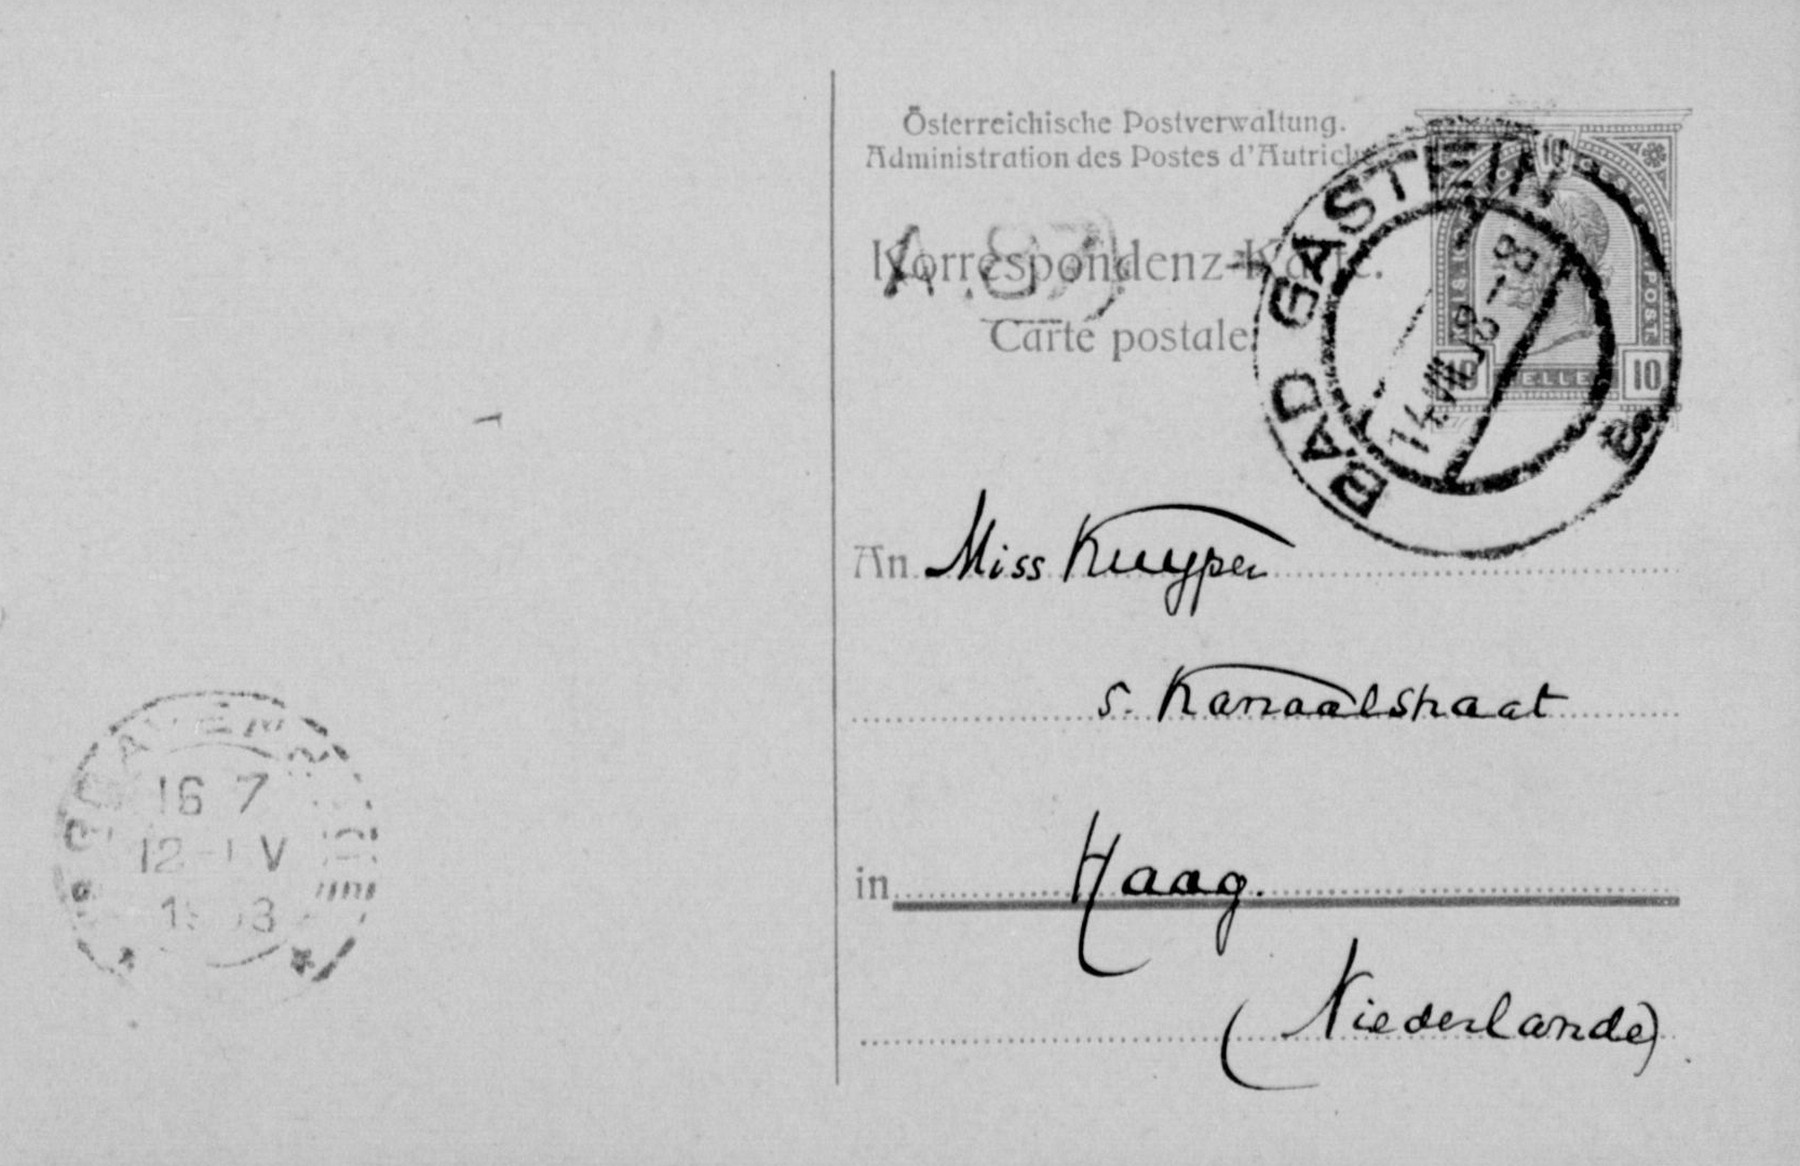 Österreichische Postverwaltung.
Administration des Postes d'Autriche.
Korrespondenz-Karte.
Carte postale.
BAD GASTEIN
10 10
HELLER
POST.
An Miss Kuyper
5. Kanaalstraat
in Haag.
(Niederlande)
16 7
12-1 V